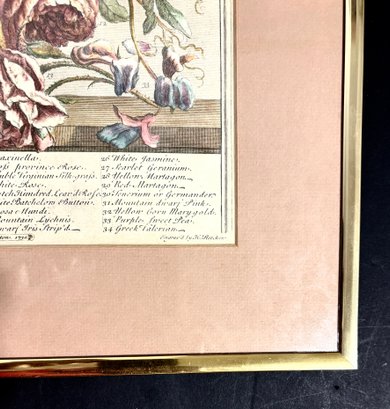 33
axinella.
ss province Rose.
uble Virginian Silk-grass.
hite Rose.
utch Hundred Leav'd Rose
ite Batchelors Button.
osa Mundi.
ountain Lychnis.
warf Iris Strip'd
26 White Jasmine.
27 Scarlet Geranium.
28 Yellow Martagon.
29 Red Martagon.
30 Teucrium or Germander
31 Mountain dwarf Pink.
32 Yellow Corn Marygold.
33 Purple Sweet Pea.
34 Greek Valerian.
Engrav'd by